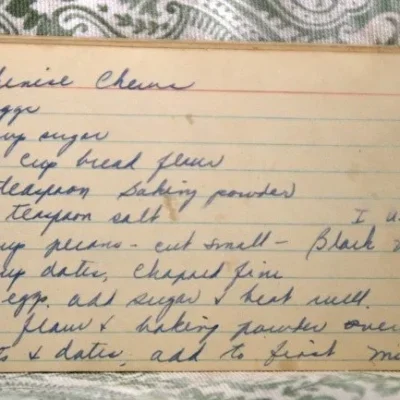 inise Chews
ggs
up sugar
cup bread flour
teaspoon baking powder
teaspoon salt I u
up pecans - cut small - Black
up dates, chopped fine
eggs. add sugar & beat well.
flour & baking powder over
ts & dates, add to first mi